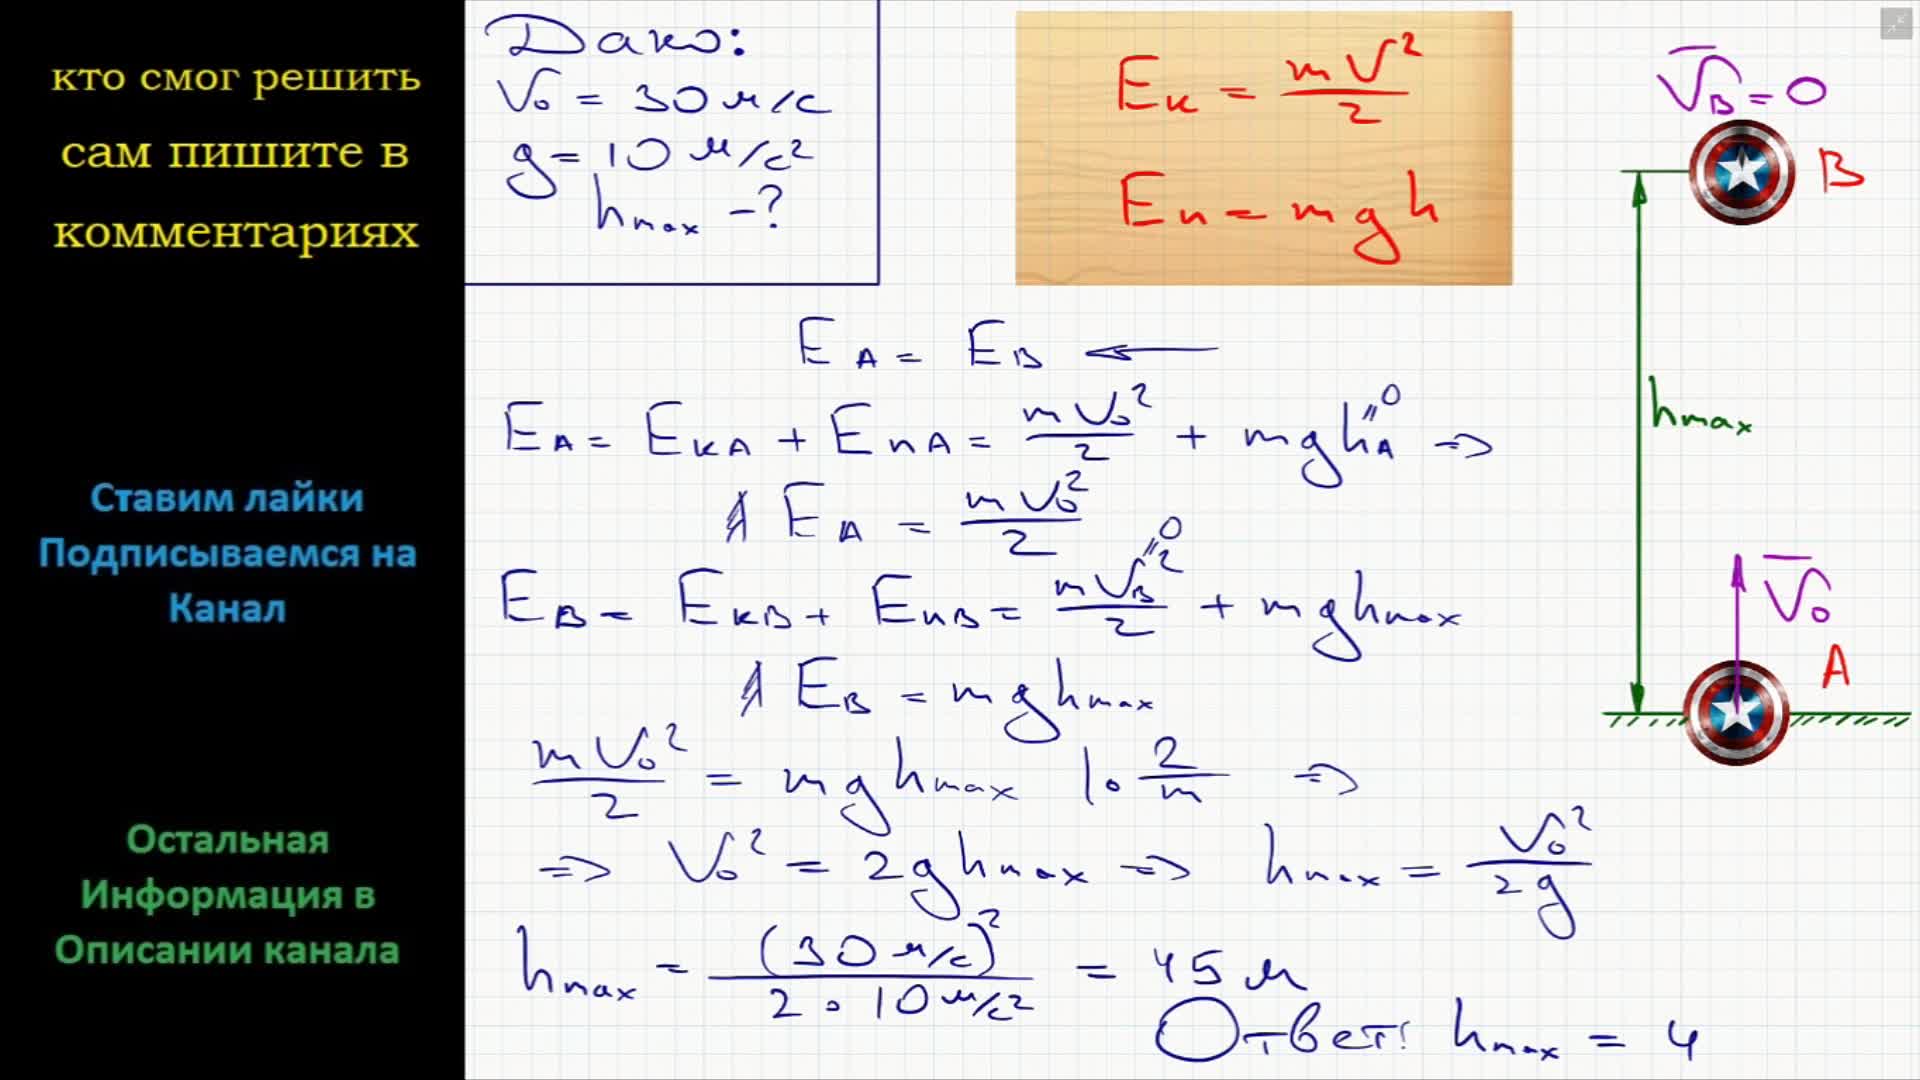 кто смог решить
сам пишите в
комментариях
Ставим лайки
Подписываемся на
Канал
Остальная
Информация в
Описании канала
Дано:
V₀ = 30 м/с
g = 10 м/с²
hmax - ?
Eк = mV²/2
Eп = mgh
V̅B = 0
B
hmax
V̅₀
A
EA = EB ←
EA = EкA + EпA = mV₀²/2 + mghA⁼⁰ =>
EA = mV₀²/2
EB = EкB + EпB = mVB²⁼⁰/2 + mghmax
EB = mghmax
mV₀²/2 = mghmax |· 2/m =>
=> V₀² = 2ghmax => hmax = V₀²/2g
hmax = (30 м/с)²/2·10 м/с² = 45 м
Ответ: hmax = 4